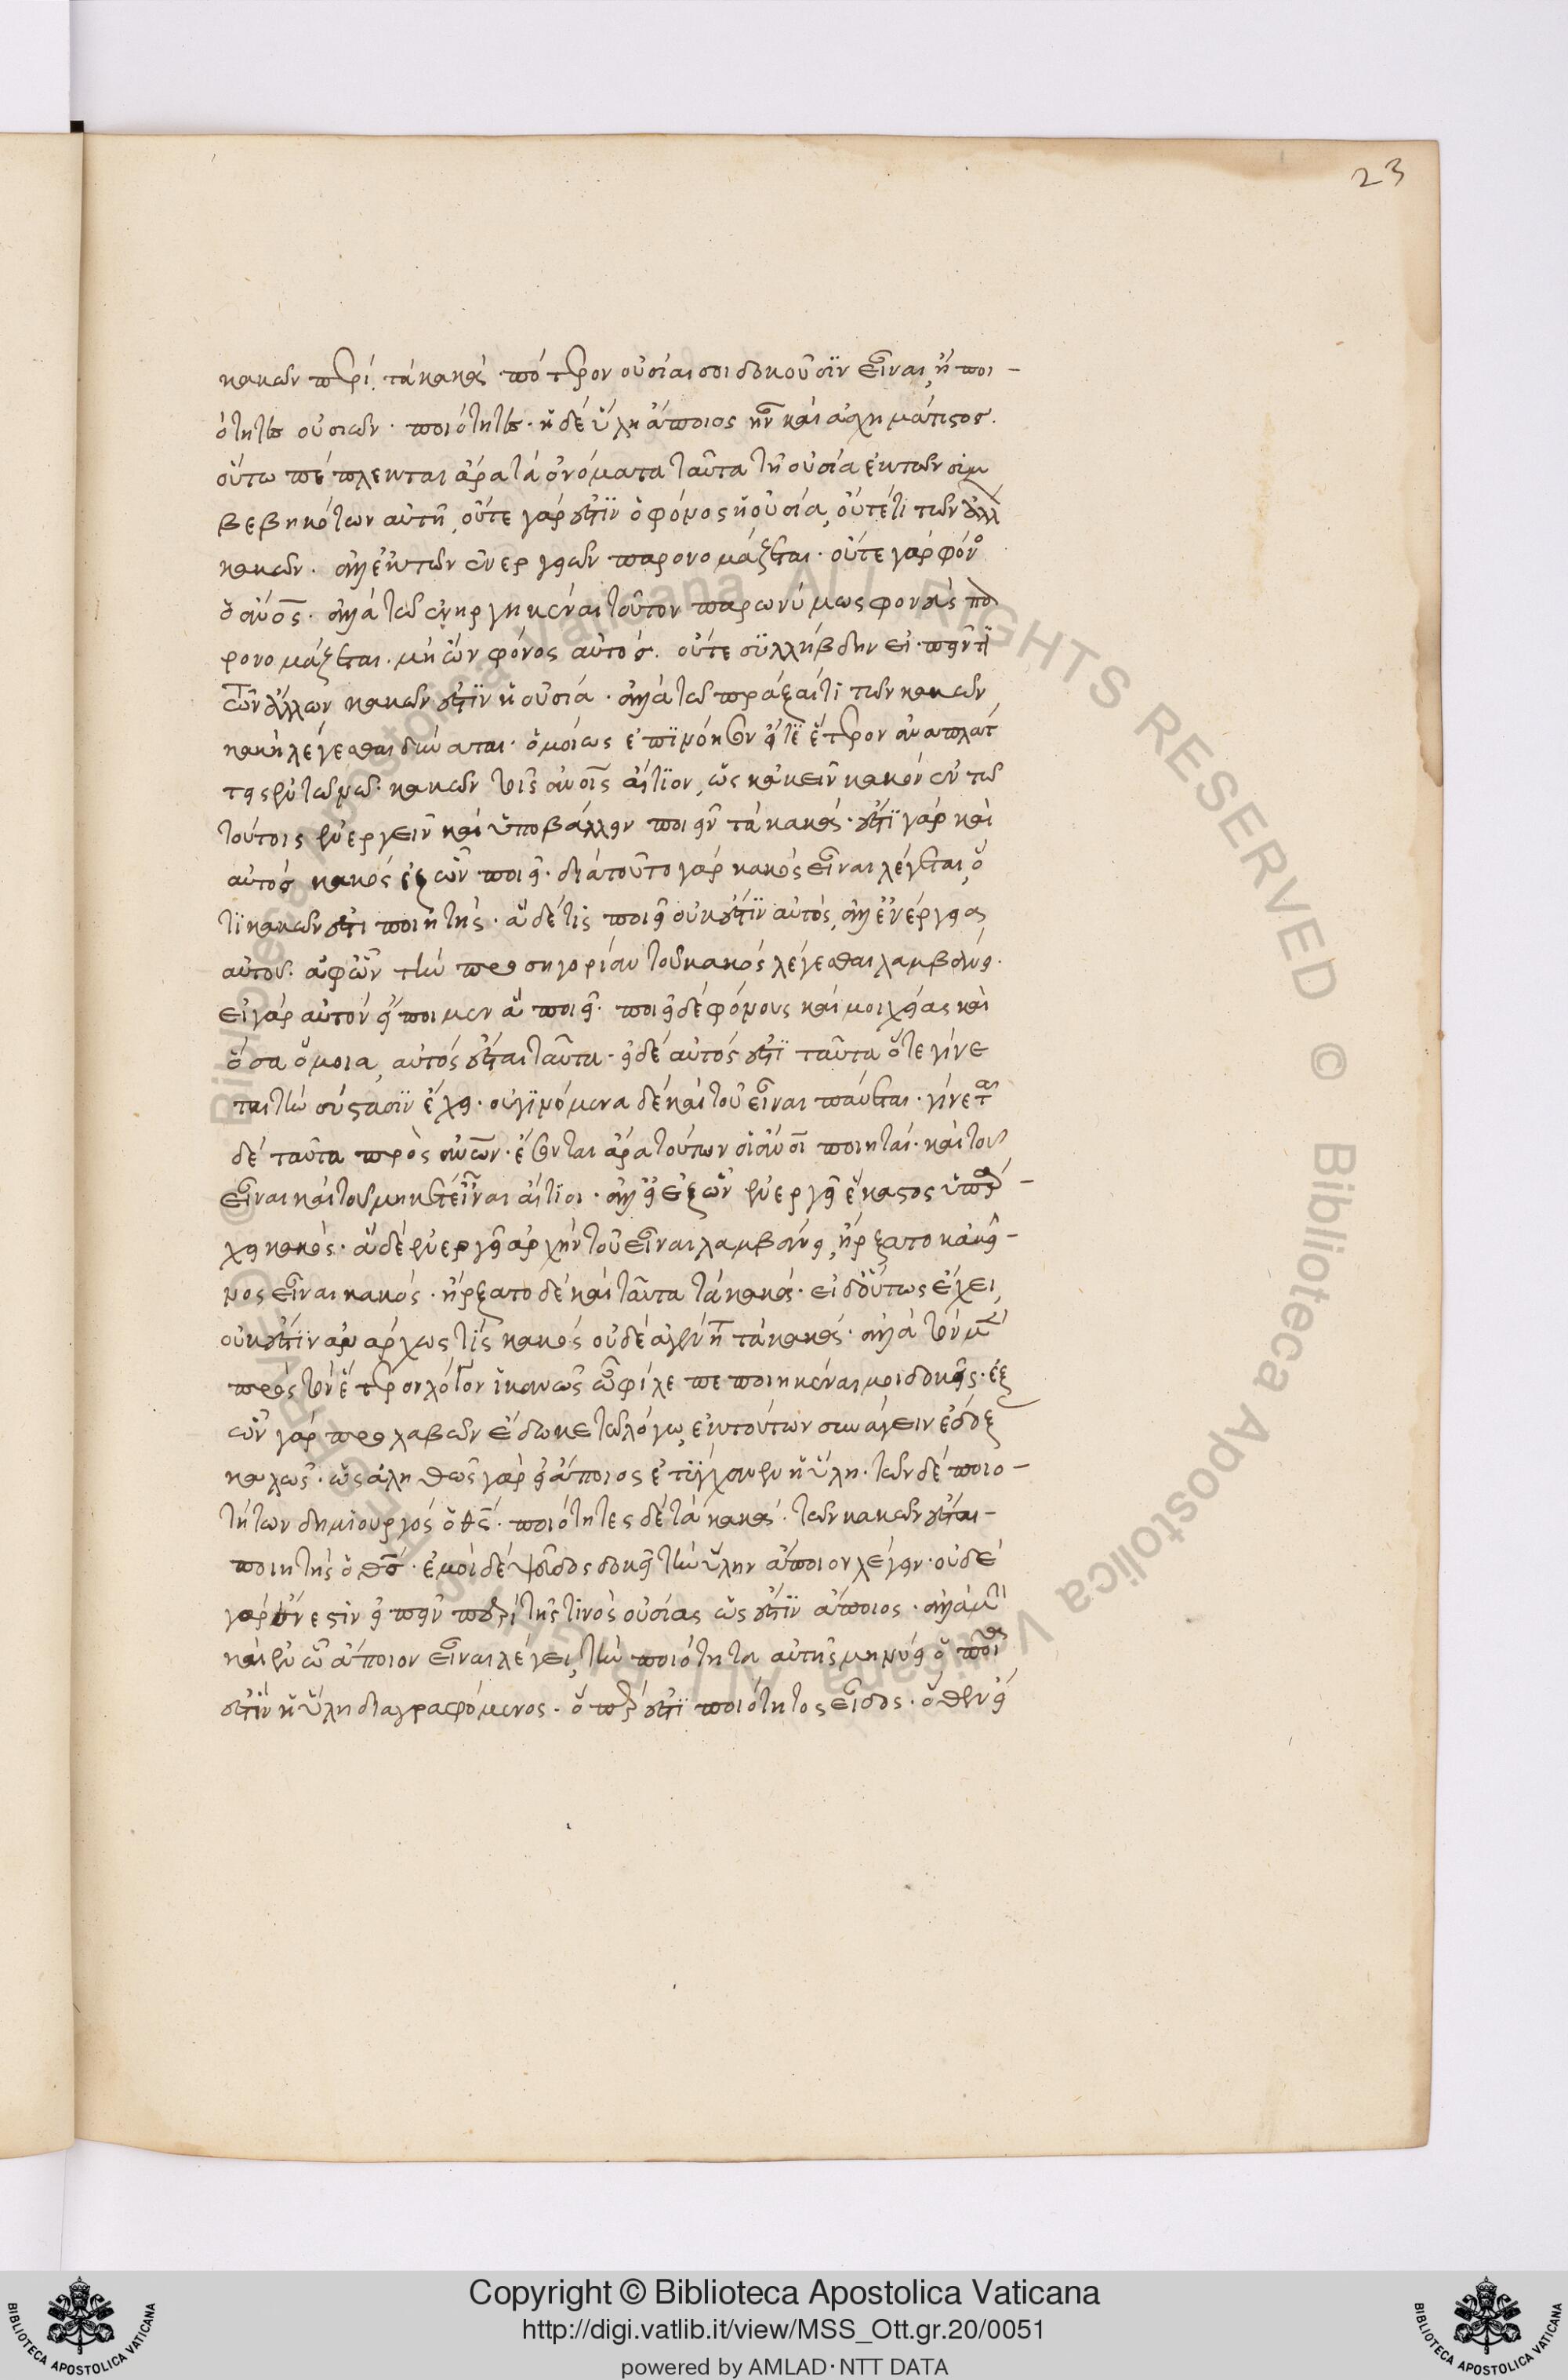 23
κακῶν περὶ τὰ κακά. πότερον οὐσίαι σοι δοκοῦσϊν εἶναι, ἢ ποι-
ότητες οὐσιῶν. ποιότητες. ἡ δὲ ὕλη ἄποιος ἦν καὶ ἀσχημάτιστος.
οὕτω πέπλεκται ἄρα τὰ ὀνόματα ταῦτα τῆ οὐσία ἐκ τῶν σιμ
βεβηκότων αὐτῆ, οὔτε γάρ ἐστϊν ὁ φόνος ἡ οὐσία, οὔτέ τι τῶν ἄλλ
κακῶν. ἀλλ' ἐκ τῶν ἐνεργειῶν παρονομάζεται. οὔτε γὰρ φόνος
ὁ ἄνος. ἀλλὰ τῶ ἐνηργηκέναι τοῦτον παρωνύμως φονεὺς πα
ρονομάζεται. μὴ ὢν φόνος αὐτός. οὔτε συλλήβδην εἰπεῖν τϊ
τῶν ἄλλων κακῶν ἐστϊν ἡ οὐσία. ἀλλὰ τῶ πράξαί τι τῶν κακῶν
κακὴ λέγεσθαι δύναται. ὁμοίως ἐπϊνόησον εἴ τϊ ἕτερον ἀναπλάτ
τεις ἐν τῶ νῶ. κακῶν τοῖς ἀνοις αἴτϊον, ὡς κἀκεῖν κακὸν ἐν τῶ
τούτοις ἐνεργεῖν καὶ ὑποβάλλειν ποιεῖν τὰ κακά. ἔστϊ γὰρ καὶ
αὐτὸς κακὸς ἐξ ὧν ποιεῖ. διὰ τοῦτο γὰρ κακὸς εἶναι λέγεται, ὅ
τι κακῶν ἐστι ποιητής. ἃ δέ τις ποιεῖ οὐκ ἔστϊν αὐτός, ἀλλ' ἐνέργεια
αὐτοῦ. ἀφ' ὧν τὴν προσηγορίαν τοῦ κακὸς λέγεσθαι λαμβάνει.
εἰ γὰρ αὐτὸν εἴποιμεν ἃ ποιεῖ. ποιεῖ δὲ φόνους καὶ μοιχείας καὶ
ὅσα ὅμοια, αὐτὸς ἔσται ταῦτα. εἰ δὲ αὐτός ἐστϊ ταῦτα ὅτε γίνε
ται τὴν σύστασϊν ἔχει. οὐ γϊνόμενα δὲ καὶ τοῦ εἶναι παύεται. γίνεται
δὲ ταῦτα πρὸς ἀνων. ἔσονται ἄρα τούτων οἱ ἄνοι ποιηταί. καὶ τοῦ
εἶναι καὶ τοῦ μηκέτ' εἶναι αἴτϊοι. ἀλλ' εἰ ἐξ ὧν ἐνεργεῖ ἕκαστος ὑπάρ-
χει κακός. ἃ δὲ ἐνεργεῖ ἀρχὴν τοῦ εἶναι λαμβάνει, ἤρξατο κἀκεῖ-
νος εἶναι κακός. ἤρξατο δὲ καὶ ταῦτα τὰ κακά. εἰ δ' οὕτως ἔχει,
οὐκ ἔστϊν ἀνάρχως τϊς κακός οὐδὲ ἀγένητα τὰ κακά. ἀλλὰ τὸν μὲν
πρὸς τὸν ἕτερον λόγον ἱκανῶς ὦ φίλε πεποιηκέναι μοι δοκεῖς. ἐξ
ὧν γὰρ προλαβὼν ἔδωκε τῶ λόγω, ἐκ τούτων συνάγειν ἔδοξ
καλῶς. ὡς ἀληθῶς γὰρ εἰ ἄποιος ἐτύγχανεν ἡ ὕλη. τῶν δὲ ποιο-
τήτων δημιουργὸς ὁ θς. ποιότητες δὲ τὰ κακά. τῶν κακῶν ἔσται-
ποιητὴς ὁ θς. ἐμοὶ δὲ ψεῦδος δοκεῖ τὴν ὕλην ἄποιον λέγειν. οὐδὲ
γὰρ ἔνεστιν εἰπεῖν περί τῆς τινὸς οὐσίας ὡς ἔστϊν ἄποιος. ἀλλὰ μὴν
καὶ ἐν ὧ ἄποιον εἶναι λέγει, τὴν ποιότητα αὐτῆς μηνύει ὁποία
ἐστϊν ἡ ὕλη διαγραφόμενος. ὅπερ ἐστϊ ποιότητος εἶδος. ὅθεν εἰ
Copyright © Biblioteca Apostolica Vaticana
http://digi.vatlib.it/view/MSS_Ott.gr.20/0051
powered by AMLAD·NTT DATA
BIBLIOTECA APOSTOLICA VATICANA
BIBLIOTECA APOSTOLICA VATICANA